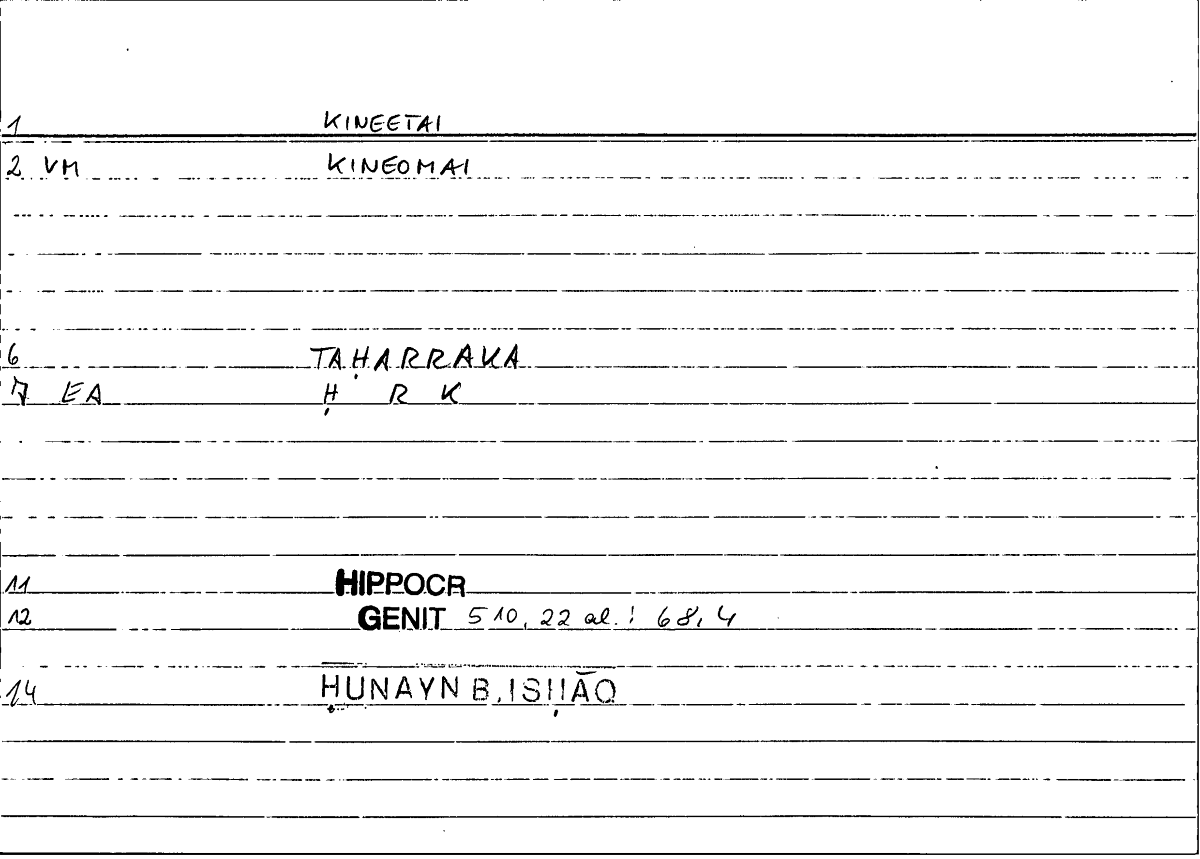 1 KINEETAI
2 VM KINEOMAI
6 TAḤARRAKA
7 EA Ḥ R K
11 HIPPOCR
12 GENIT 510,22 al.: 68,4
14 ḤUNAYN B. ISḤĀQ